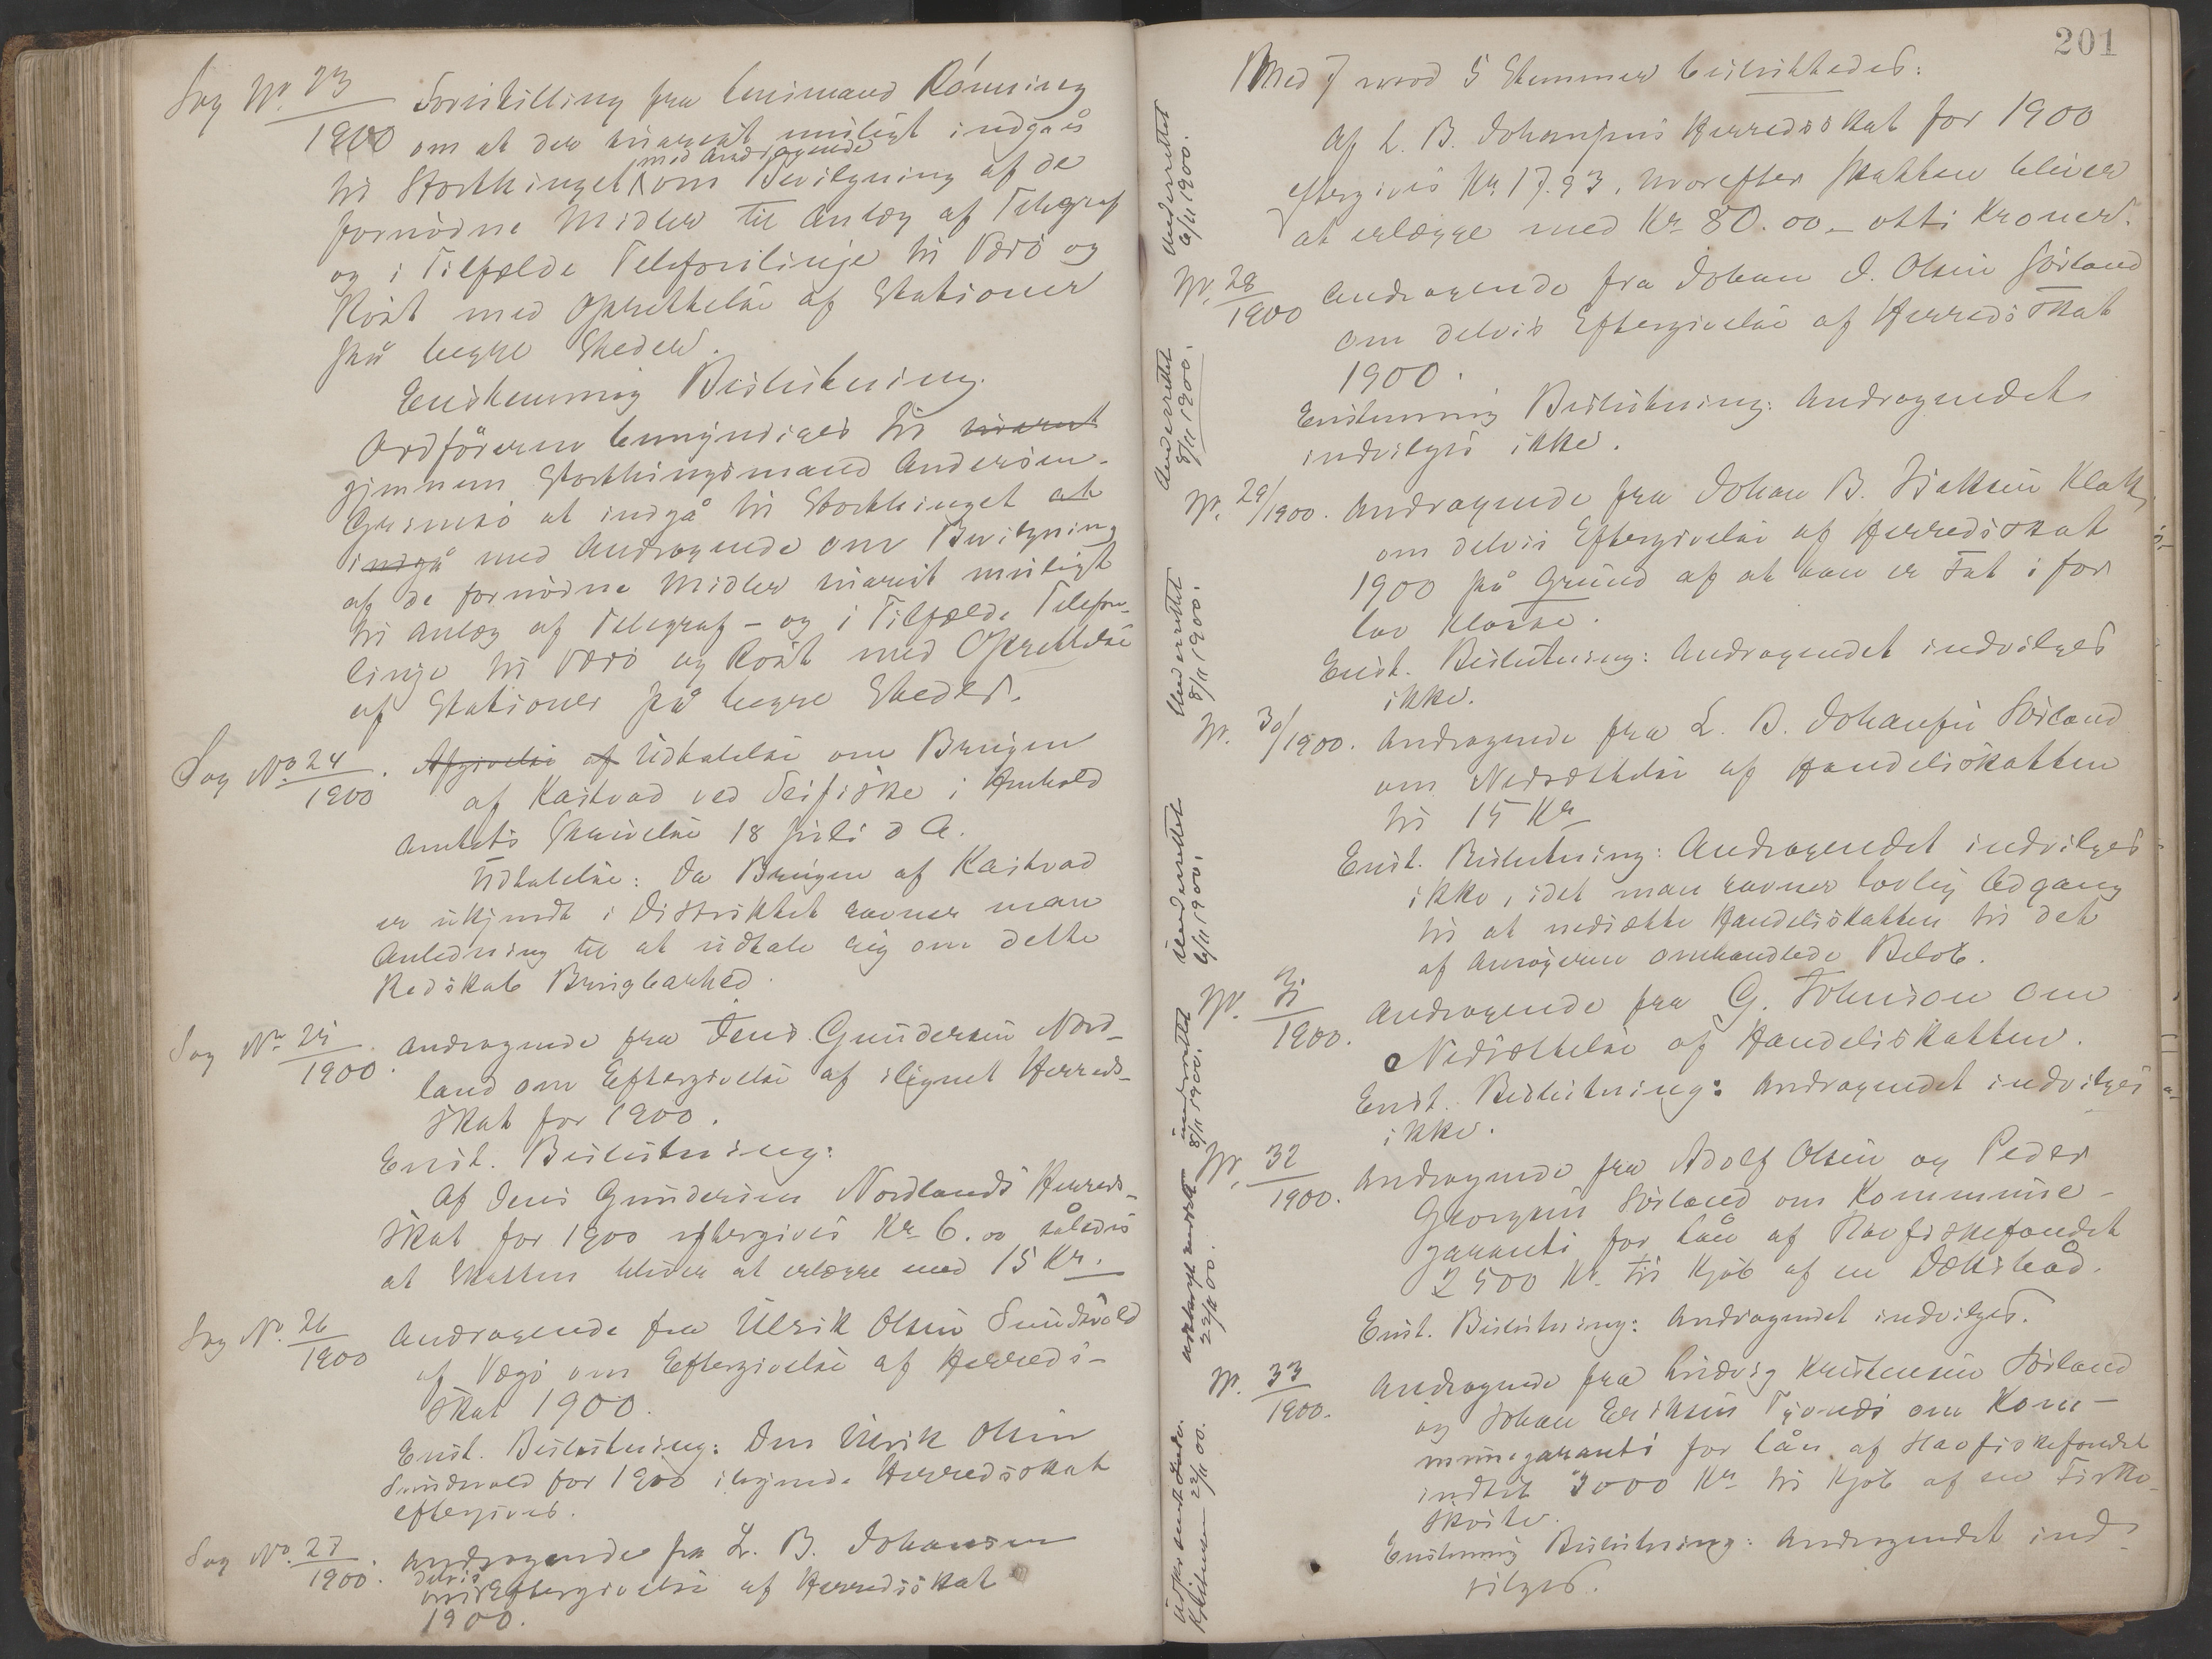 Sag No. 23/1900 Forestilling fra Lensmand Rønning
om at der snarest muligt indgåes
til Storthinget med Andragende om Bevilgning af de
fornødne Midler til Anlæg af Telegraf
og i Tilfælde Telefonlinje til Værø og
Røst med Oprettelse af Stationer
på begge Steder.
Enstemmig Beslutning.
Ordføreren bemyndiges til snarest
gjennem Storthingsmand Andersen-
Grimsø at indgå til Storthinget at
indgå med Andragende om Bevilgning
af de fornødne Midler snarest muligt
til Anlæg af Telegraf - og i Tilfælde Telefon-
linje til Værø og Røst med Oprettelse
af Stationer på begge Steder.
Sag No. 24/1900. Afgivelse af Udtalelse om Brugen
af Kastvad ved Seifiske i Henhold
Amtets Skrivelse 18 Juli d A.
Udtalelse: Da Brugen af Kastvad
er ukjendt i Distriktet savner man
Anledning til at udtale sig om dette
Redskab Brugbarhed.
Sag No. 25/1900. Andragende fra Jens Gundersen Nord-
land om Eftergivelse af ilignet Herreds-
skat for 1900.
Enst. Beslutning:
Af Jens Gundersen Nordlands Herreds-
skat for 1900 eftergives Kr 6.00 således
at Skatten bliver at erlægge med 15 Kr.
Sag No. 26/1900 Andragende fra Ulrik Olsen Sundsvold
af Vægø om Eftergivelse af Herreds-
skat 1900.
Enst. Beslutning: Den Ulrik Olsen
Sundsvold for 1900 ilignede Herredsskat
eftergives.
Sag No. 27/1900. Andragende fra L. B. Johansen
om delvis Eftergivelse af Herredsskat
1900.
201
Med 7 mod 5 Stemmer besluttedes:
Af L. B. Johansens Herredsskat for 1900
eftergives Kr 17.93, hvorefter Skatten bliver
at erlægge med Kr 80.00 - otti Kroner.
No. 28/1900 Andragende fra Johan J. Olsen Sørland
om delvis Eftergivelse af Herredsskat
1900.
Enstemmig Beslutning: Andragendet
indvilges ikke.
No. 29/1900. Andragende fra Johan B. Isaksen
om delvis Eftergivelse af Herredsskat
1900 på Grund af at han er sat i for
lav Klasse.
Enst. Beslutning: Andragendet indvilges
ikke.
No. 30/1900. Andragende fra L. B. Johansen Sørland
om Nedsættelse af Handelsskatten
til 15 Kr
Enst. Beslutning: Andragendet indvilges
ikke, idet man savner lovlig Adgang
til at nedsætte Handelsskatten til det
af Ansøgeren omhandlede Beløb.
No. 31/1900. Andragende fra G. Johnson om
Nedsættelse af Handelsskatten.
Enst. Beslutning: Andragendet indvilges
ikke.
No. 32/1900. Andragende fra Adolf Olsen og Peder
Georgsen Sørland om Kommune-
garanti for Lån af Havfiskefondet
2500 Kr til Kjøb af en Dæksbåd.
Enst. Beslutning: Andragendet indvilges.
No. 33/1900. Andragende fra Ludvig Kristensen Sørland
og Johan Eriksen om Kom-
munegaranti for Lån af Havfiskefondet
indtil 3000 Kr til Kjøb af en Fiske-
skøite.
Enstemmig Beslutning: Andragendet ind-
vilges.
Underrettet
6/11 1900.
Underrettet
8/11 1900.
Underrettet
8/11 1900.
Underrettet
6/11 1900.
Underrettet
8/11 1900.
22/11 00.
22/11 00.